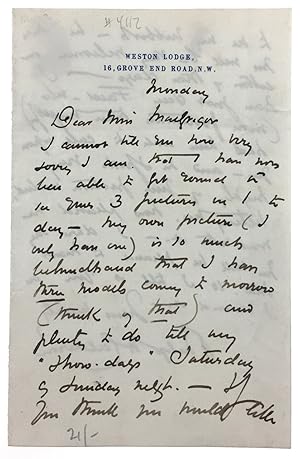 # 4112
WESTON LODGE,
16, GROVE END ROAD. N.W.
Monday
Dear Miss Macgregor
I cannot tell you how very
sorry I am that I have not
been able to get round to
see your 3 pictures on 1 to
day — my own picture (I
only have one) is so much
behindhand that I have
three models coming to morrow
(think of that) and
plenty to do till my
"Show-days" Saturday
& Sunday next. — If
you think you would like
21/-